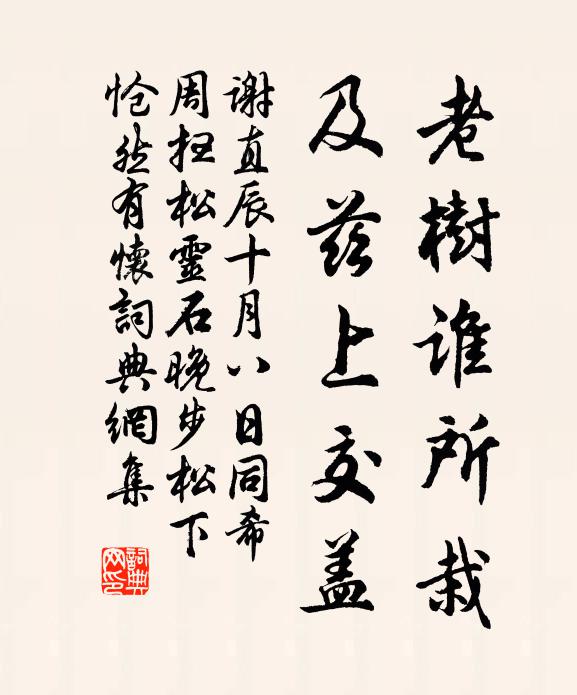 老樹誰所栽
及茲上交蓋
謝直辰十月八日同希
周抂松靈石晚步松下
愴然有懷詞典網集
詞典网印